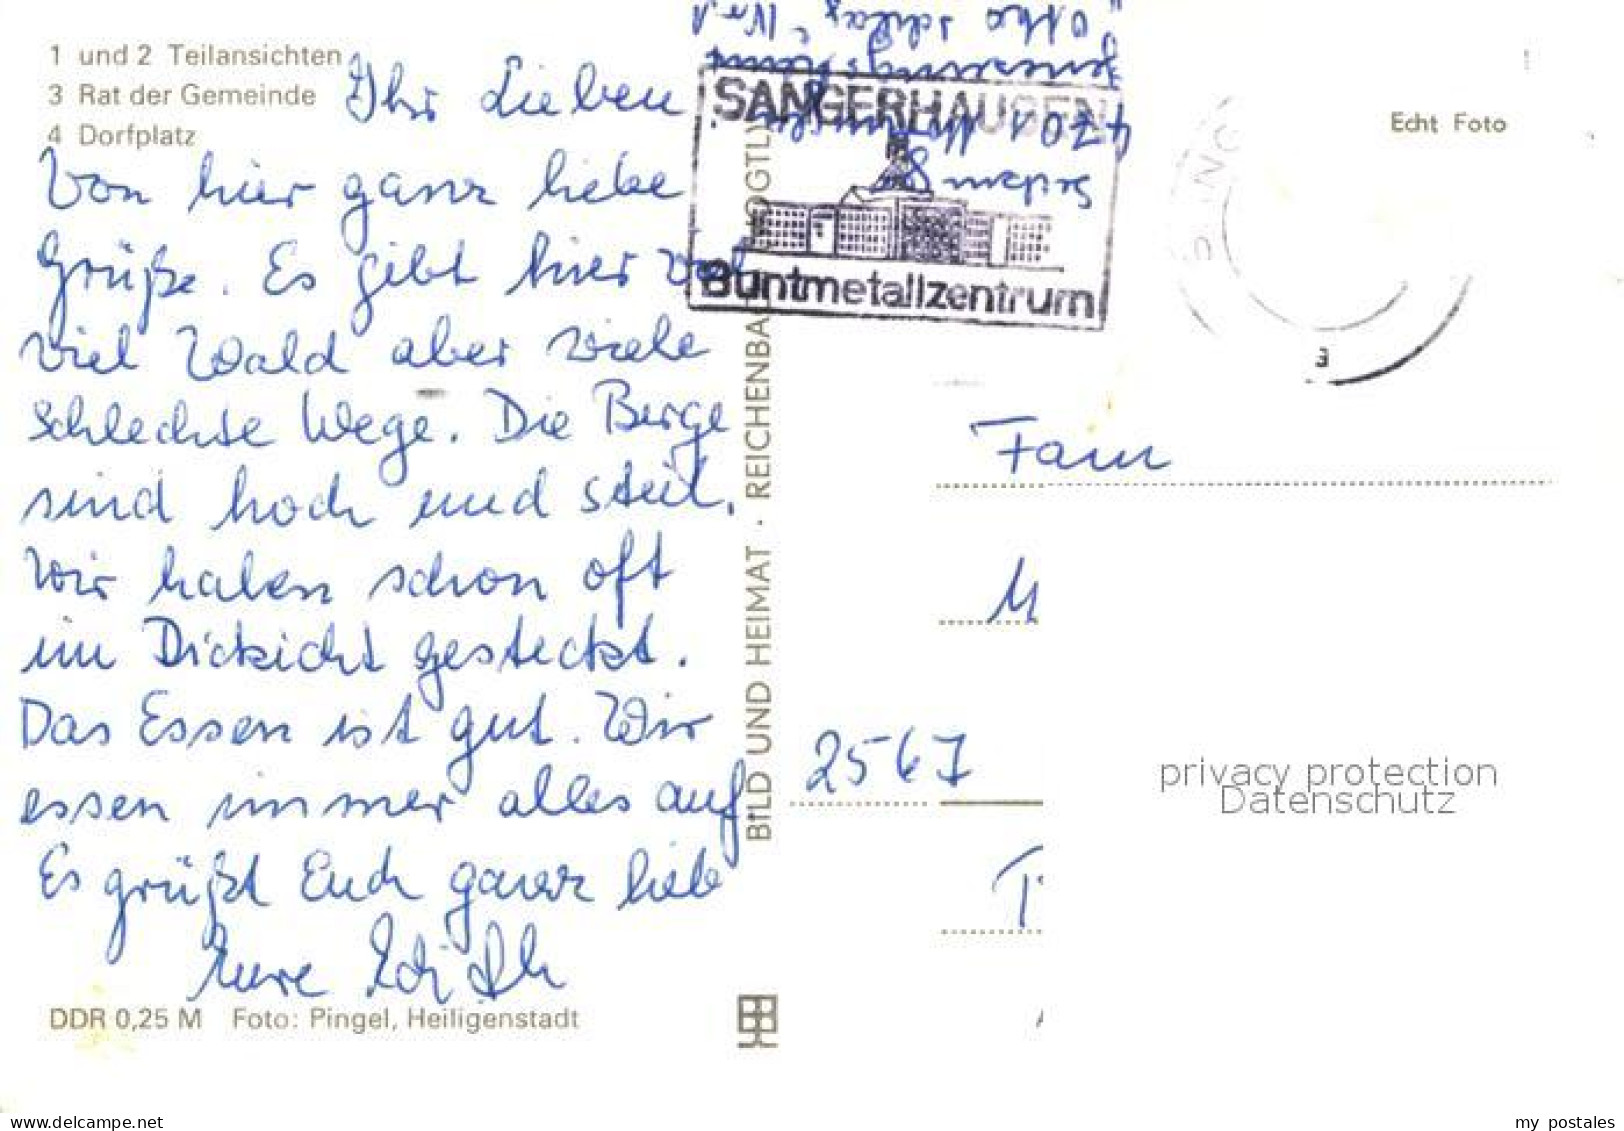 1 und 2 Teilansichten
3 Rat der Gemeinde
4 Dorfplatz
Ihr Lieben
Von hier ganz liebe
Grüße. Es gibt hier
viel Wald aber viele
schlechte Wege. Die Berge
sind hoch und steil.
Wir haben schon oft
im Dickicht gesteckt.
Das Essen ist gut. Wir
essen immer alles auf
Es grüßt Euch ganz lieb
Eure Edith
DDR 0,25 M Foto: Pingel, Heiligenstadt
BILD UND HEIMAT · REICHENBA OGTL)
Nr. 1
4701
SANGERHAUSEN
Buntmetallzentrum
Echt Foto
3
Fam
M
2567
privacy protection
Datenschutz
www.delcampe.net
my_postales